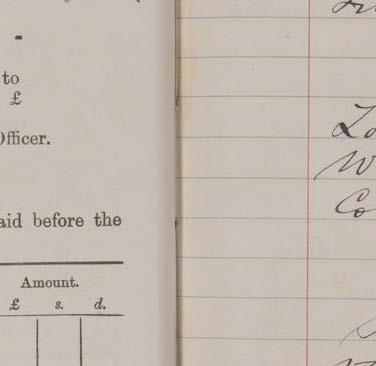 -
to
£
Officer.
aid before the
Amount.
£ s. d.
Lo
W
Co